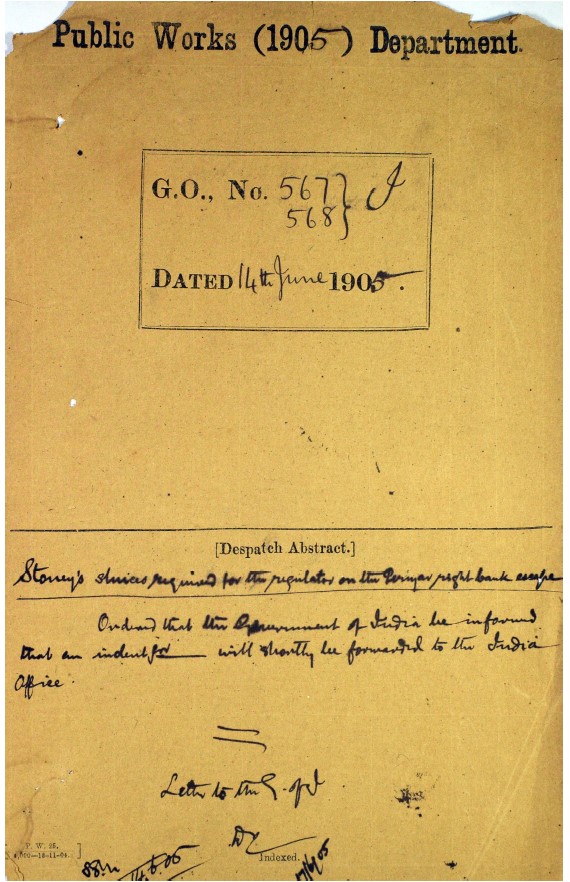 Public Works (1905) Department.
G.O., No. 567 } J
568 }
DATED 14th June 1905.
[Despatch Abstract.]
Stoney's sluices required for the regulator on the Periyar right bank escape
Ordered that the Government of India be informed
that an indent for will shortly be forwarded to the India
Office.
Letter to the G. of I
P. W. 25,
Indexed.
14.6.05